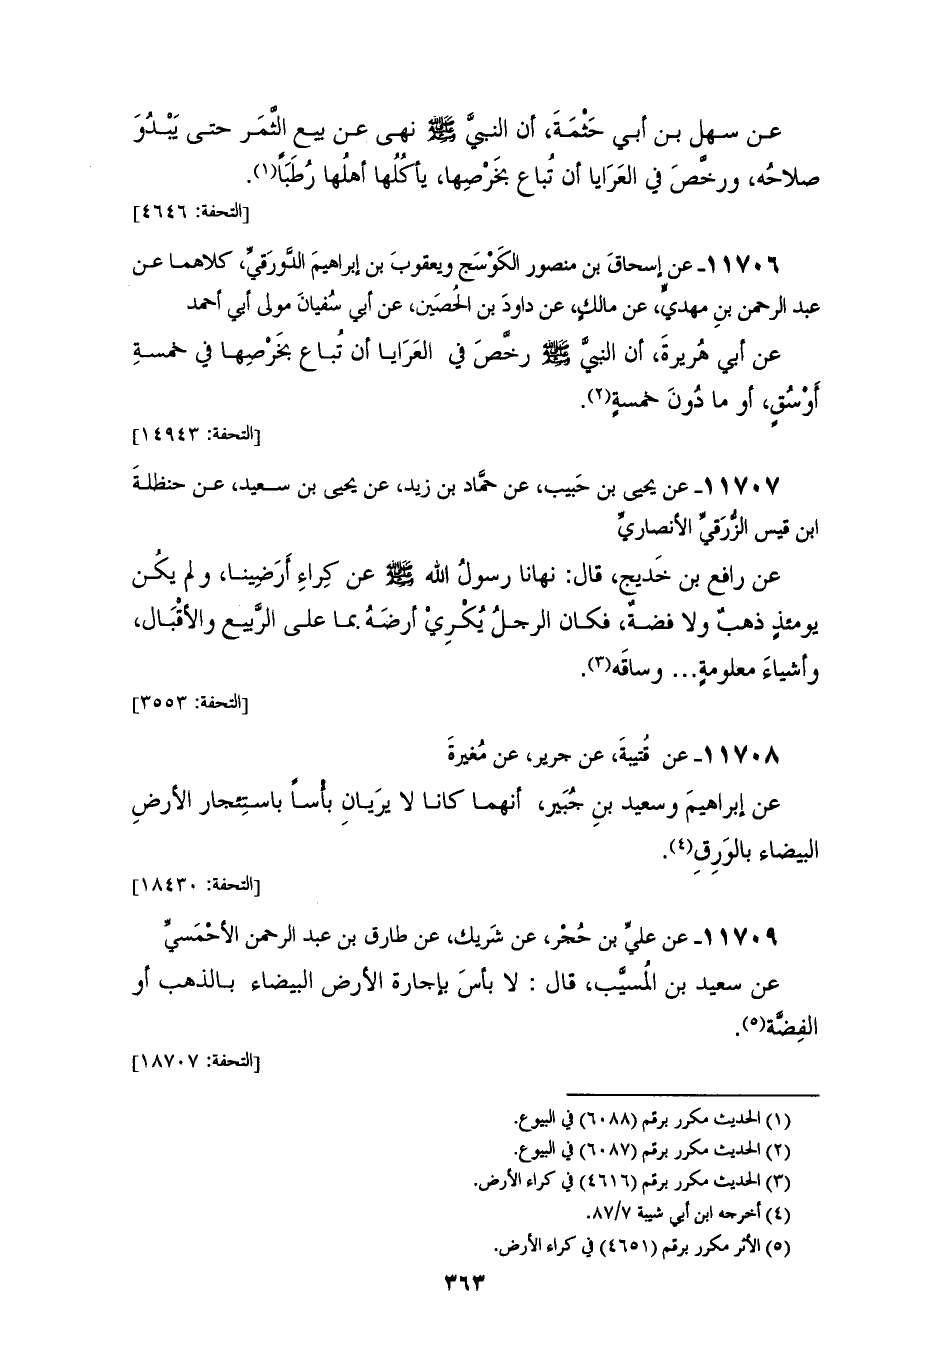 عن سهل بن أبي حَثْمَةَ، أن النبيَّ ﷺ نهى عن بيع الثَّمَر حتى يَبْدُوَ
صلاحُه، ورخَّصَ في العَرَايا أن تُباع بخَرْصِها، يأكُلُها أهلُها رُطَبَاً(١).
[التحفة: ٤٦٤٦]
١١٧٠٦ـ عن إسحاقَ بن منصور الكَوْسَج ويعقوبَ بن إبراهيمَ الدَّورَقيِّ، كلاهما عن
عبد الرحمن بنِ مهديٍّ، عن مالكٍ، عن داودَ بن الحُصَين، عن أبي سُفيانَ مولى أبي أحمد
عن أبي هُريرةَ، أن النبيَّ ﷺ رخَّصَ في العَرَايا أن تُباع بخَرْصِها في خمسةِ
أَوْسُقٍ، أو ما دُونَ خمسةٍ(٢).
[التحفة: ١٤٩٤٣]
١١٧٠٧ـ عن يحيى بن حَبيب، عن حمَّاد بن زيد، عن يحيى بن سعيد، عن حنظلةَ
ابن قيس الزُّرَقيِّ الأنصاريِّ
عن رافع بن خَديج، قال: نهانا رسولُ الله ﷺ عن كِراءِ أَرَضِينا، ولم يكُن
يومئذٍ ذهبٌ ولا فضةٌ، فكان الرجلُ يُكْرِيْ أرضَهُ بما على الرَّبيع والأقْبَال،
وأشياءَ معلومةٍ... وساقَه(٣).
[التحفة: ٣٥٥٣]
١١٧٠٨ـ عن قُتيبةَ، عن جرير، عن مُغيرةَ
عن إبراهيمَ وسعيد بنِ جُبَير، أنهما كانا لا يرَيانِ بأْساً باستِئجار الأرضِ
البيضاء بالوَرِقِ(٤).
[التحفة: ١٨٤٣٠]
١١٧٠٩ـ عن عليِّ بن حُجْر، عن شَريك، عن طارق بن عبد الرحمن الأحْمَسيِّ
عن سعيد بن المُسيَّب، قال : لا بأسَ بإجارة الأرض البيضاء بالذهب أو
الفِضَّة(٥).
[التحفة: ١٨٧٠٧]
(١) الحديث مكرر برقم (٦٠٨٨) في البيوع.
(٢) الحديث مكرر برقم (٦٠٨٧) في البيوع.
(٣) الحديث مكرر برقم (٤٦١٦) في كراء الأرض.
(٤) أخرجه ابن أبي شيبة ٨٧/٧.
(٥) الأثر مكرر برقم (٤٦٥١) في كراء الأرض.
٣٦٣